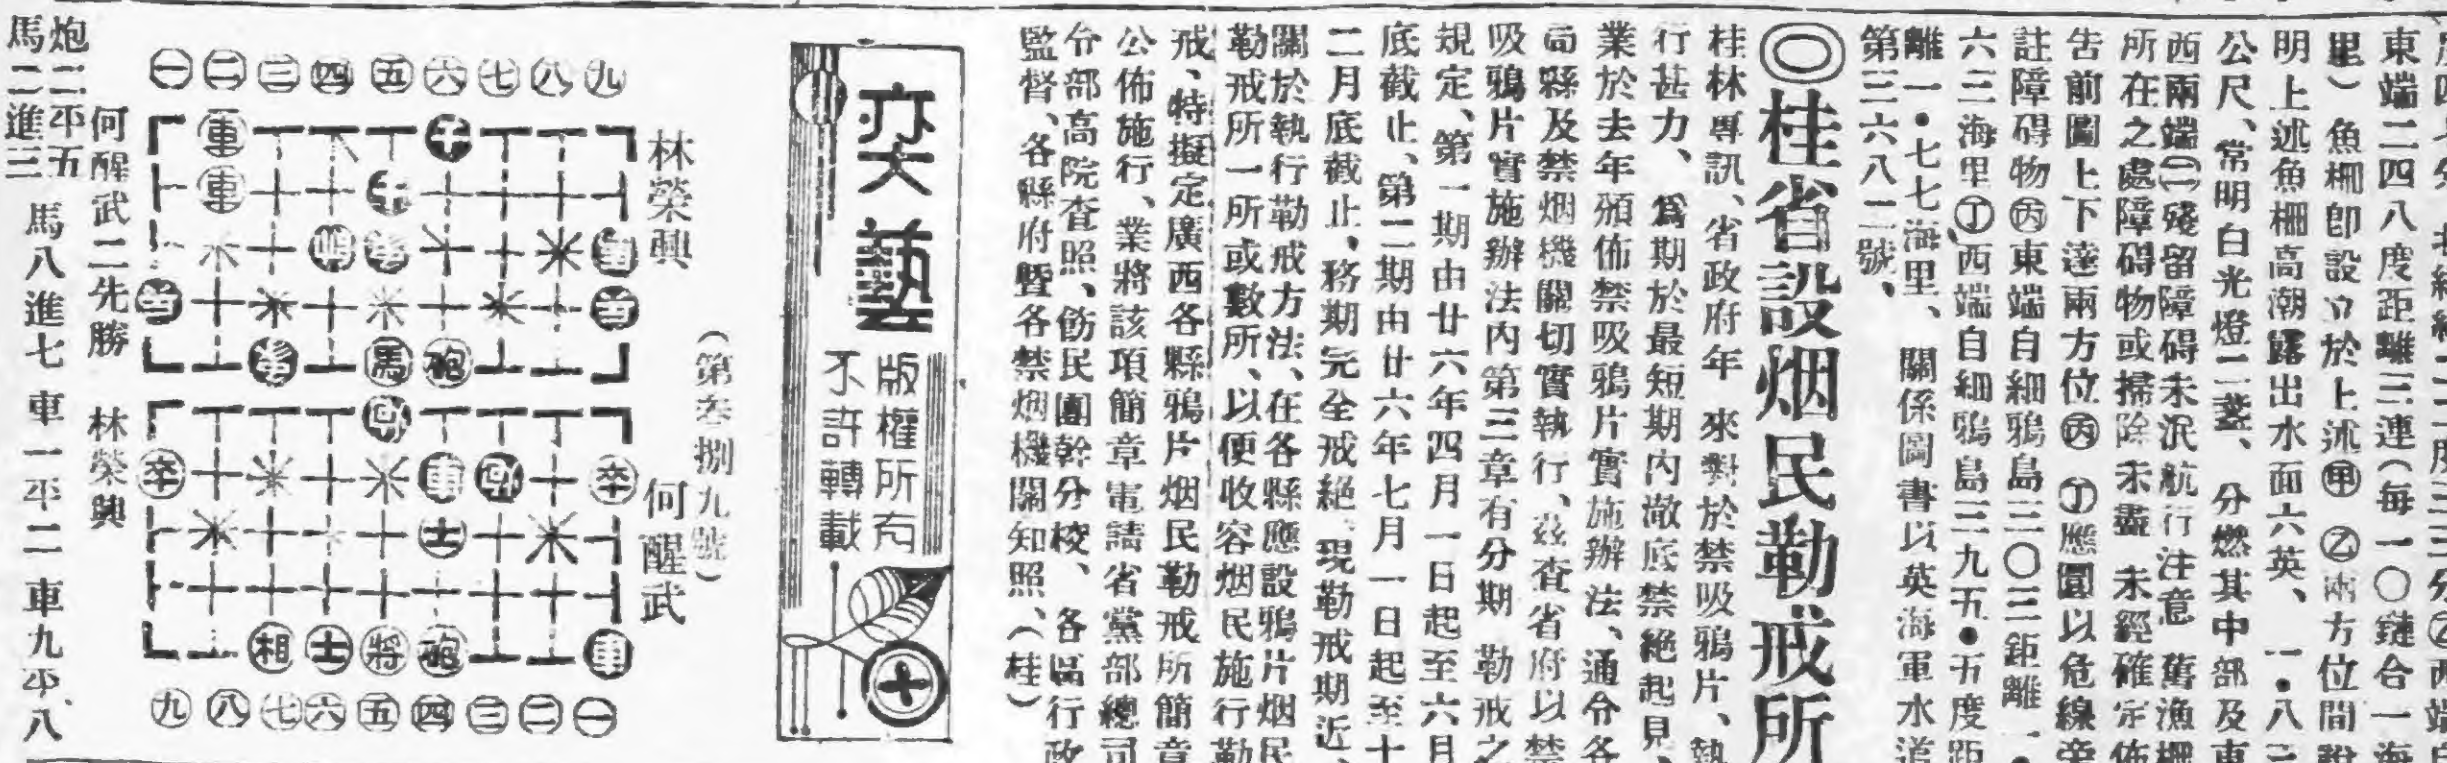 東端二四八度距離三連(每一〇鏈合一海
里)魚柵卽設立於上述㊥乙兩方位間說
明上述魚柵高潮露出水面六英、
公尺、常明白光燈二盞、分燃其中部及東
西兩端(二)殘留障碍未泯航行注意舊漁柵
所在之處障碍物或掃除未盡未經確定佈
告前圖上下達兩方位丙丁應圜以危線旁
註障碍物丙東端自細鴉島三〇三距離一•
六三海里丁西端自細鴉島二九五•五度距
離一•七七海里、關係圖書以英海軍水道
第三六八二號、
◎桂省設烟民勒戒所
桂林專訊、省政府年來對於禁吸鴉片、執
行甚力、爲期於最短期內澈底禁絕起見、
業於去年頒佈禁吸鴉片實施辦法、通令各
局縣及禁烟機關切實執行、茲查省府以禁
吸鴉片實施辦法內第三章有分期勒戒之
規定、第一期由廿六年四月一日起至六月
底截止、第二期由廿六年七月一日起至十
二月底截止、務期完全戒絕、現勒戒期近、
關於執行勒戒方法、在各縣應設鴉片烟民
勒戒所一所或數所、以便收容烟民施行勒
戒、特擬定廣西各縣鴉片烟民勒戒所簡章
公佈施行、業將該項簡章電請省黨部總司
令部高院查照、飭民團幹分校、各區行政
監督、各縣府暨各禁烟機關知照、(桂)
奕藝
版權所有
不許轉載
(第叁捌九號)
林榮興
何醒武
一二三四五六七八九
車
車
馬
砲
卒
車
卒
士
相士將砲
車
九八七六五四三二一
何醒武二先勝
林榮興
炮二平五 馬八進七 車一平二 車九平八
馬二進三